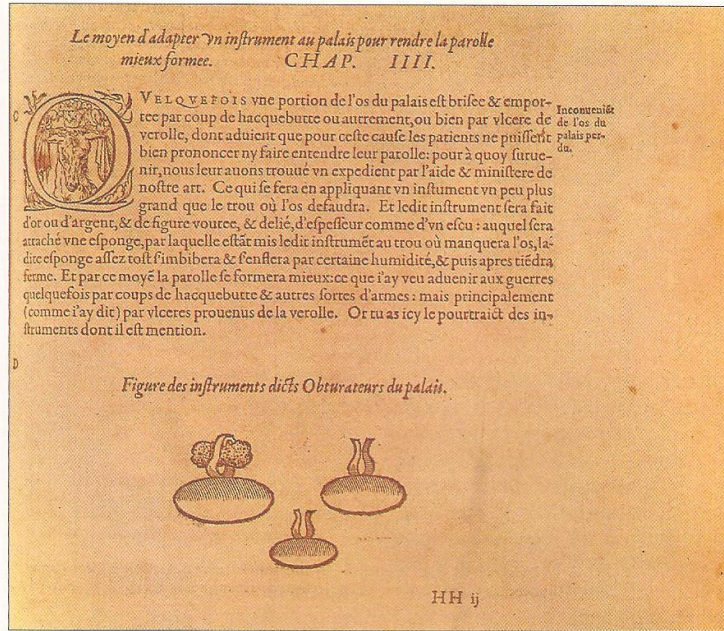 Le moyen d'adapter vn inſtrument au palais pour rendre la parolle
mieux formee. CHAP. IIII.
C
QVELQVEFOIS vne portion de l'os du palais eſt briſee & empor-
tee par coup de hacquebutte ou autrement, ou bien par vlcere de
verolle, dont aduient que pour ceſte cauſe les patients ne puiſſent
bien prononcer ny faire entendre leur parolle: pour à quoy ſurue-
nir, nous leur auons trouué vn expedient par l'aide & miniſtere de
noſtre art. Ce qui ſe fera en appliquant vn inſtument vn peu plus
grand que le trou où l'os defaudra. Et ledit inſtrument ſera fait
d'or ou d'argent, & de figure voutee, & delié, d'eſpeſſeur comme d'vn eſcu: auquel ſera
attaché vne eſponge, par laquelle eſtãt mis ledit inſtrumẽt au trou où manquera l'os, la-
dite eſponge aſſez toſt s'imbibera & s'enflera par certaine humidité, & puis apres tiẽdra
ferme. Et par ce moyẽ la parolle ſe formera mieux: ce que i'ay veu aduenir aux guerres
quelquefois par coups de hacquebutte & autres ſortes d'armes: mais principalement
(comme i'ay dit) par vlceres prouenus de la verolle. Or tu as icy le pourtraict des in-
ſtruments dont il eſt mention.
Inconueniẽt
de l'os du
palais per-
du.
D
Figure des inſtruments dicts Obturateurs du palais.
HH ij